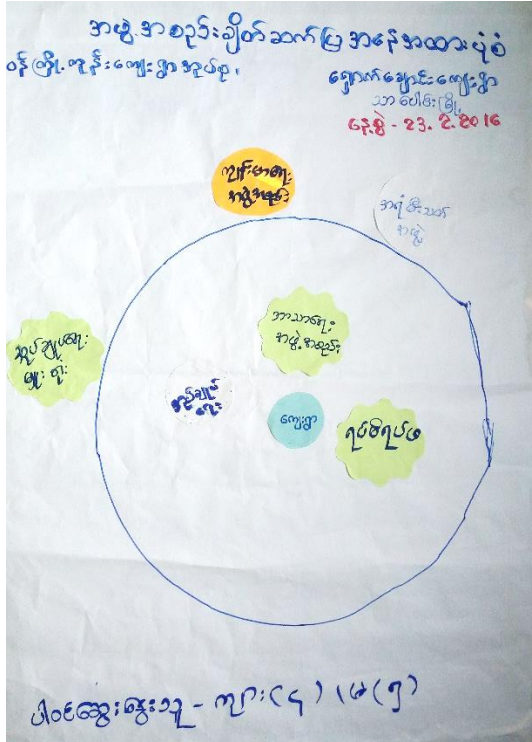 အဖွဲ့အစည်းချိတ်ဆက်ပြ အနေအထားပုံစံ
ဝန်ကြီးကုန်းကျေးရွာအုပ်စု၊
ရှောက်ချောင်းကျေးရွာ
သာပေါင်းမြို့
နေ့စွဲ - 23.2.2016
ကျန်းမာရေး
အဖွဲ့အစည်း
အရံမီးသတ်
အဖွဲ့
ဘာသာရေး
အဖွဲ့အစည်း
အုပ်ချုပ်ရေး
မှူးရုံး
အုပ်ချုပ်
ရေး
ကျေးရွာ
ရပ်မိရပ်ဖ
ပါဝင်ဆွေးနွေးသူ - ကျား(၄) ၊ မ(၅)